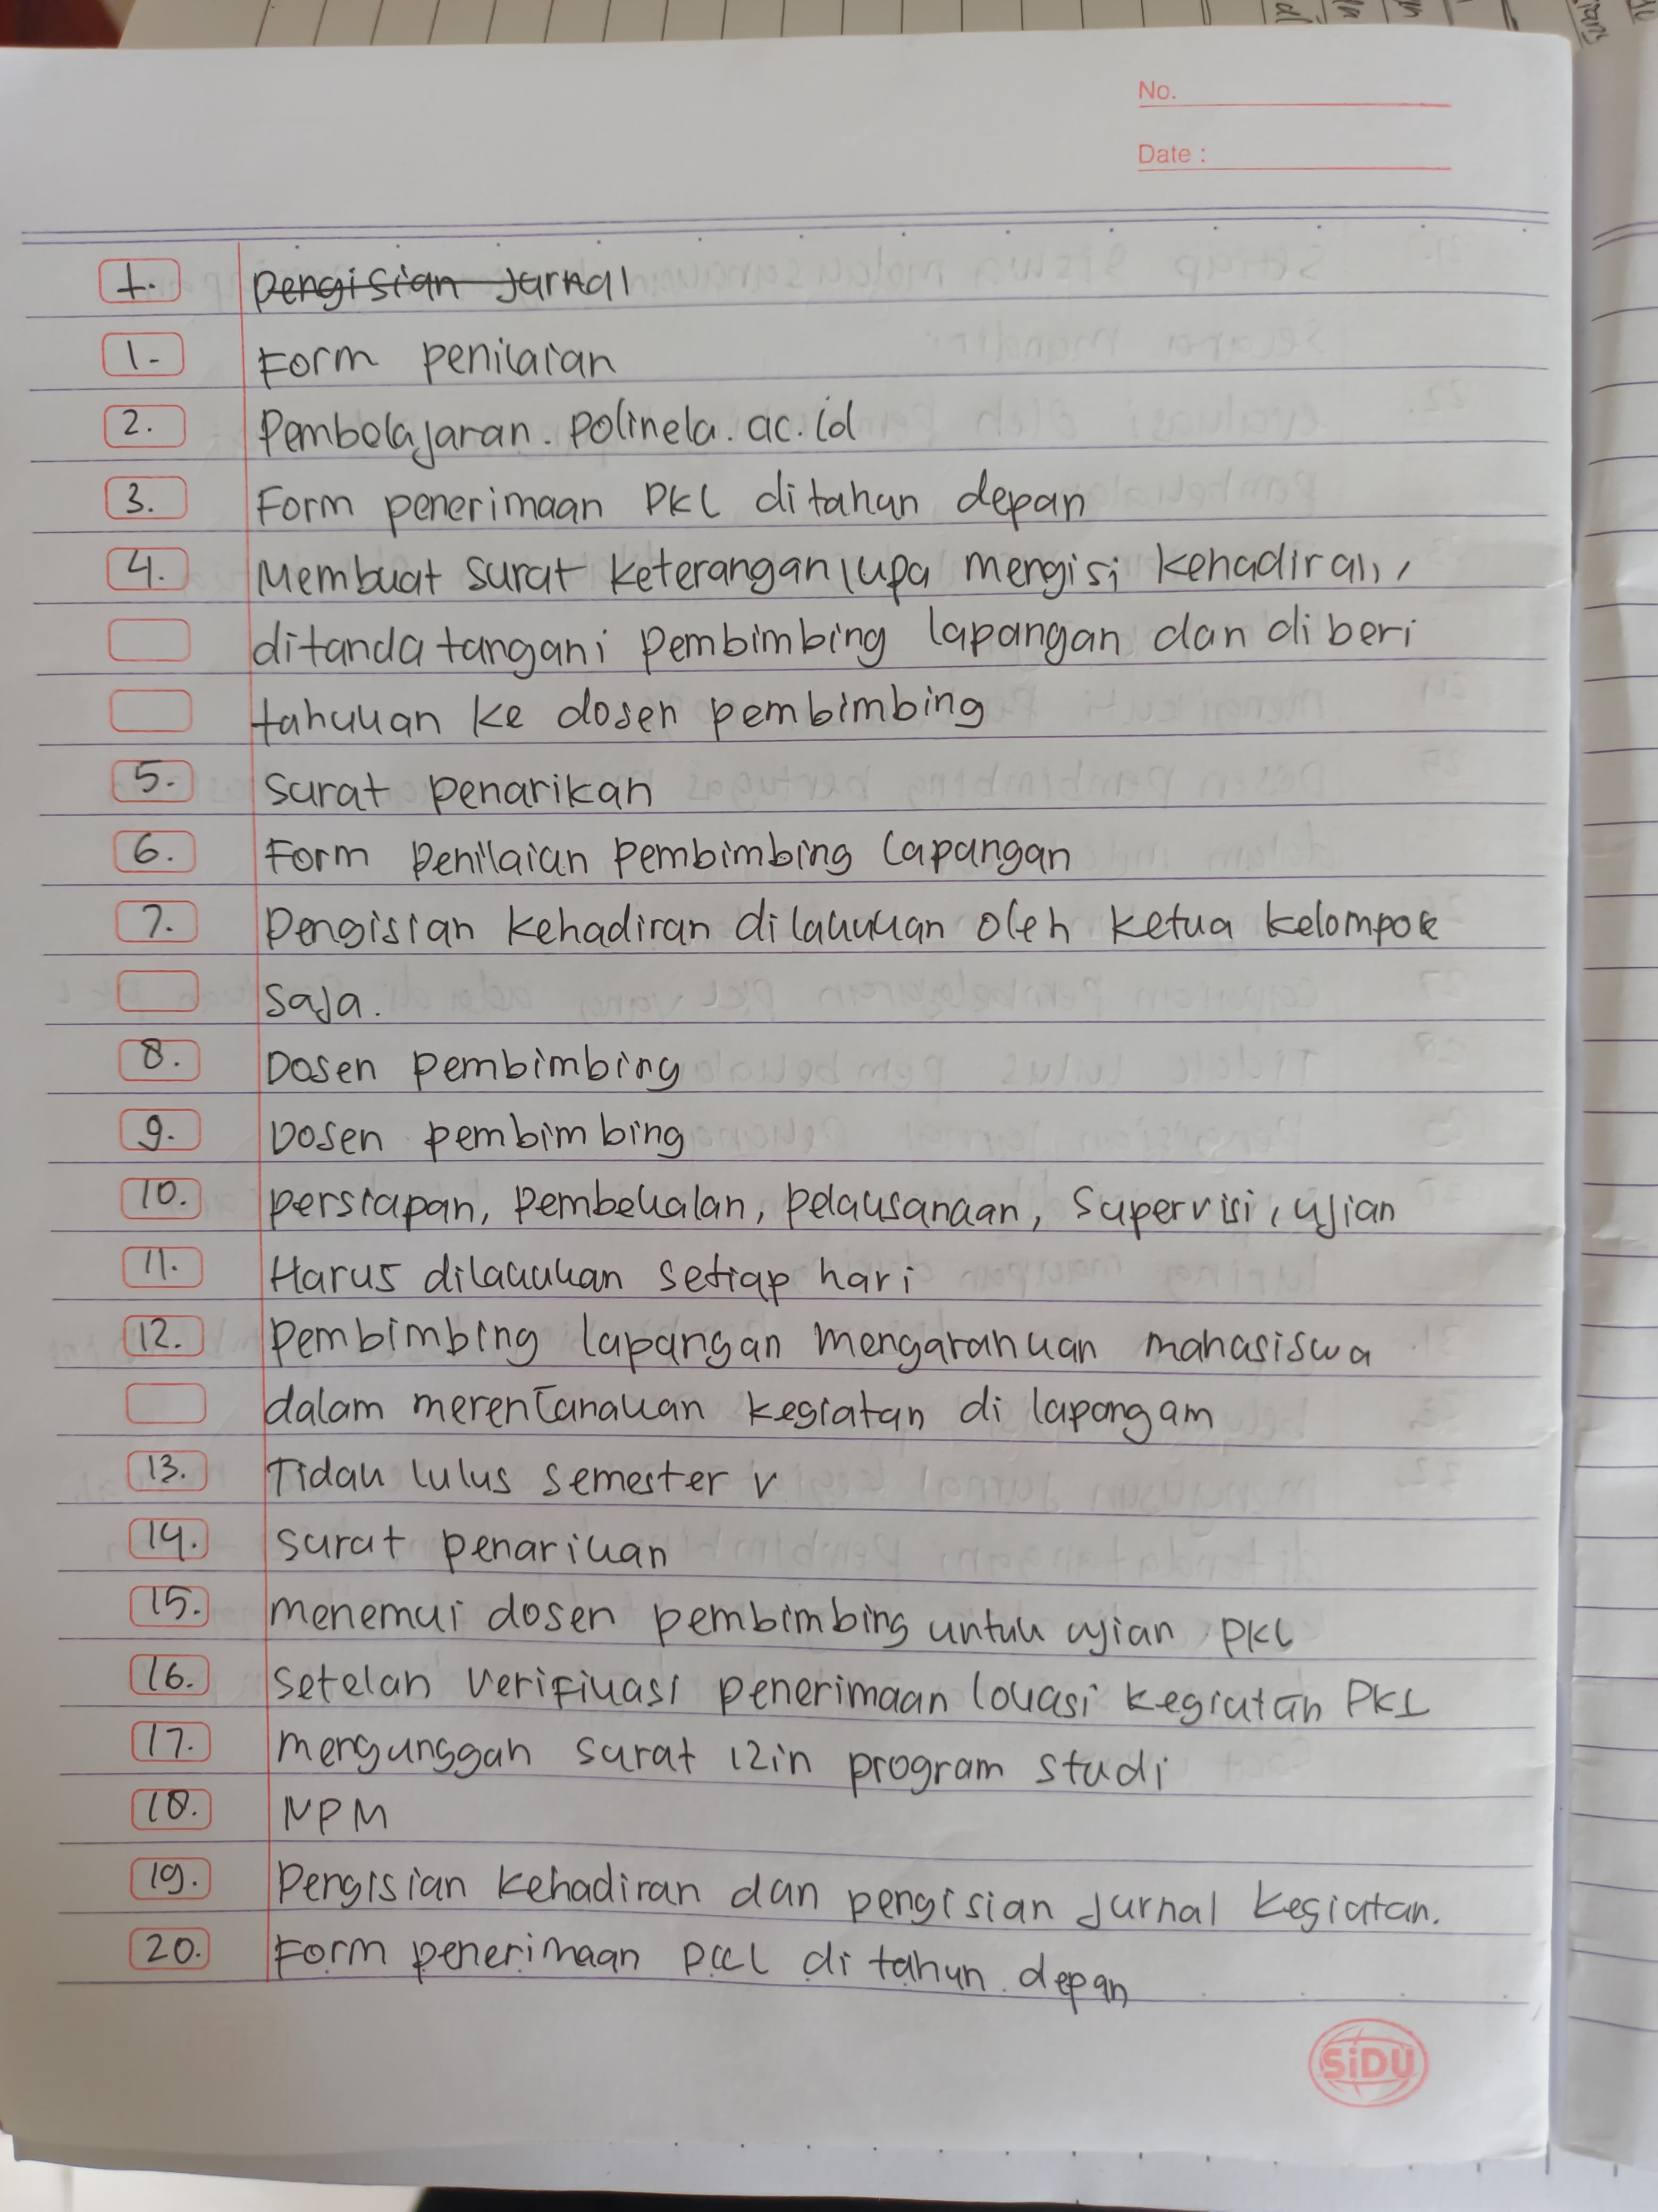 No.
Date :
1. Pengisian Jurnal
1. Form penilaian
2. Pembelajaran. polinela. ac. id
3. Form penerimaan PKL ditahun depan
4. Membuat surat keterangan lupa mengisi kehadiran,
ditanda tangani pembimbing lapangan dan di beri
tahukan ke dosen pembimbing
5. Surat penarikan
6. Form penilaian pembimbing lapangan
7. Pengisian kehadiran dilakukan oleh ketua kelompok
saja.
8. Dosen pembimbing
9. Dosen pembimbing
10. persiapan, pembekalan, pelaksanaan, supervisi, ujian
11. Harus dilakukan setiap hari
12. Pembimbing lapangan mengarahkan mahasiswa
dalam merencanakan kegiatan di lapangam
13. Tidak lulus semester V
14. Surat penarikan
15. menemui dosen pembimbing untuk ujian PKL
16. Setelah verifikasi penerimaan lokasi kegiatan PKL
17. mengunggah surat izin program studi
18. NPM
19. Pengisian kehadiran dan pengisian jurnal kegiatan.
20. Form penerimaan PKL di tahun depan
SiDU